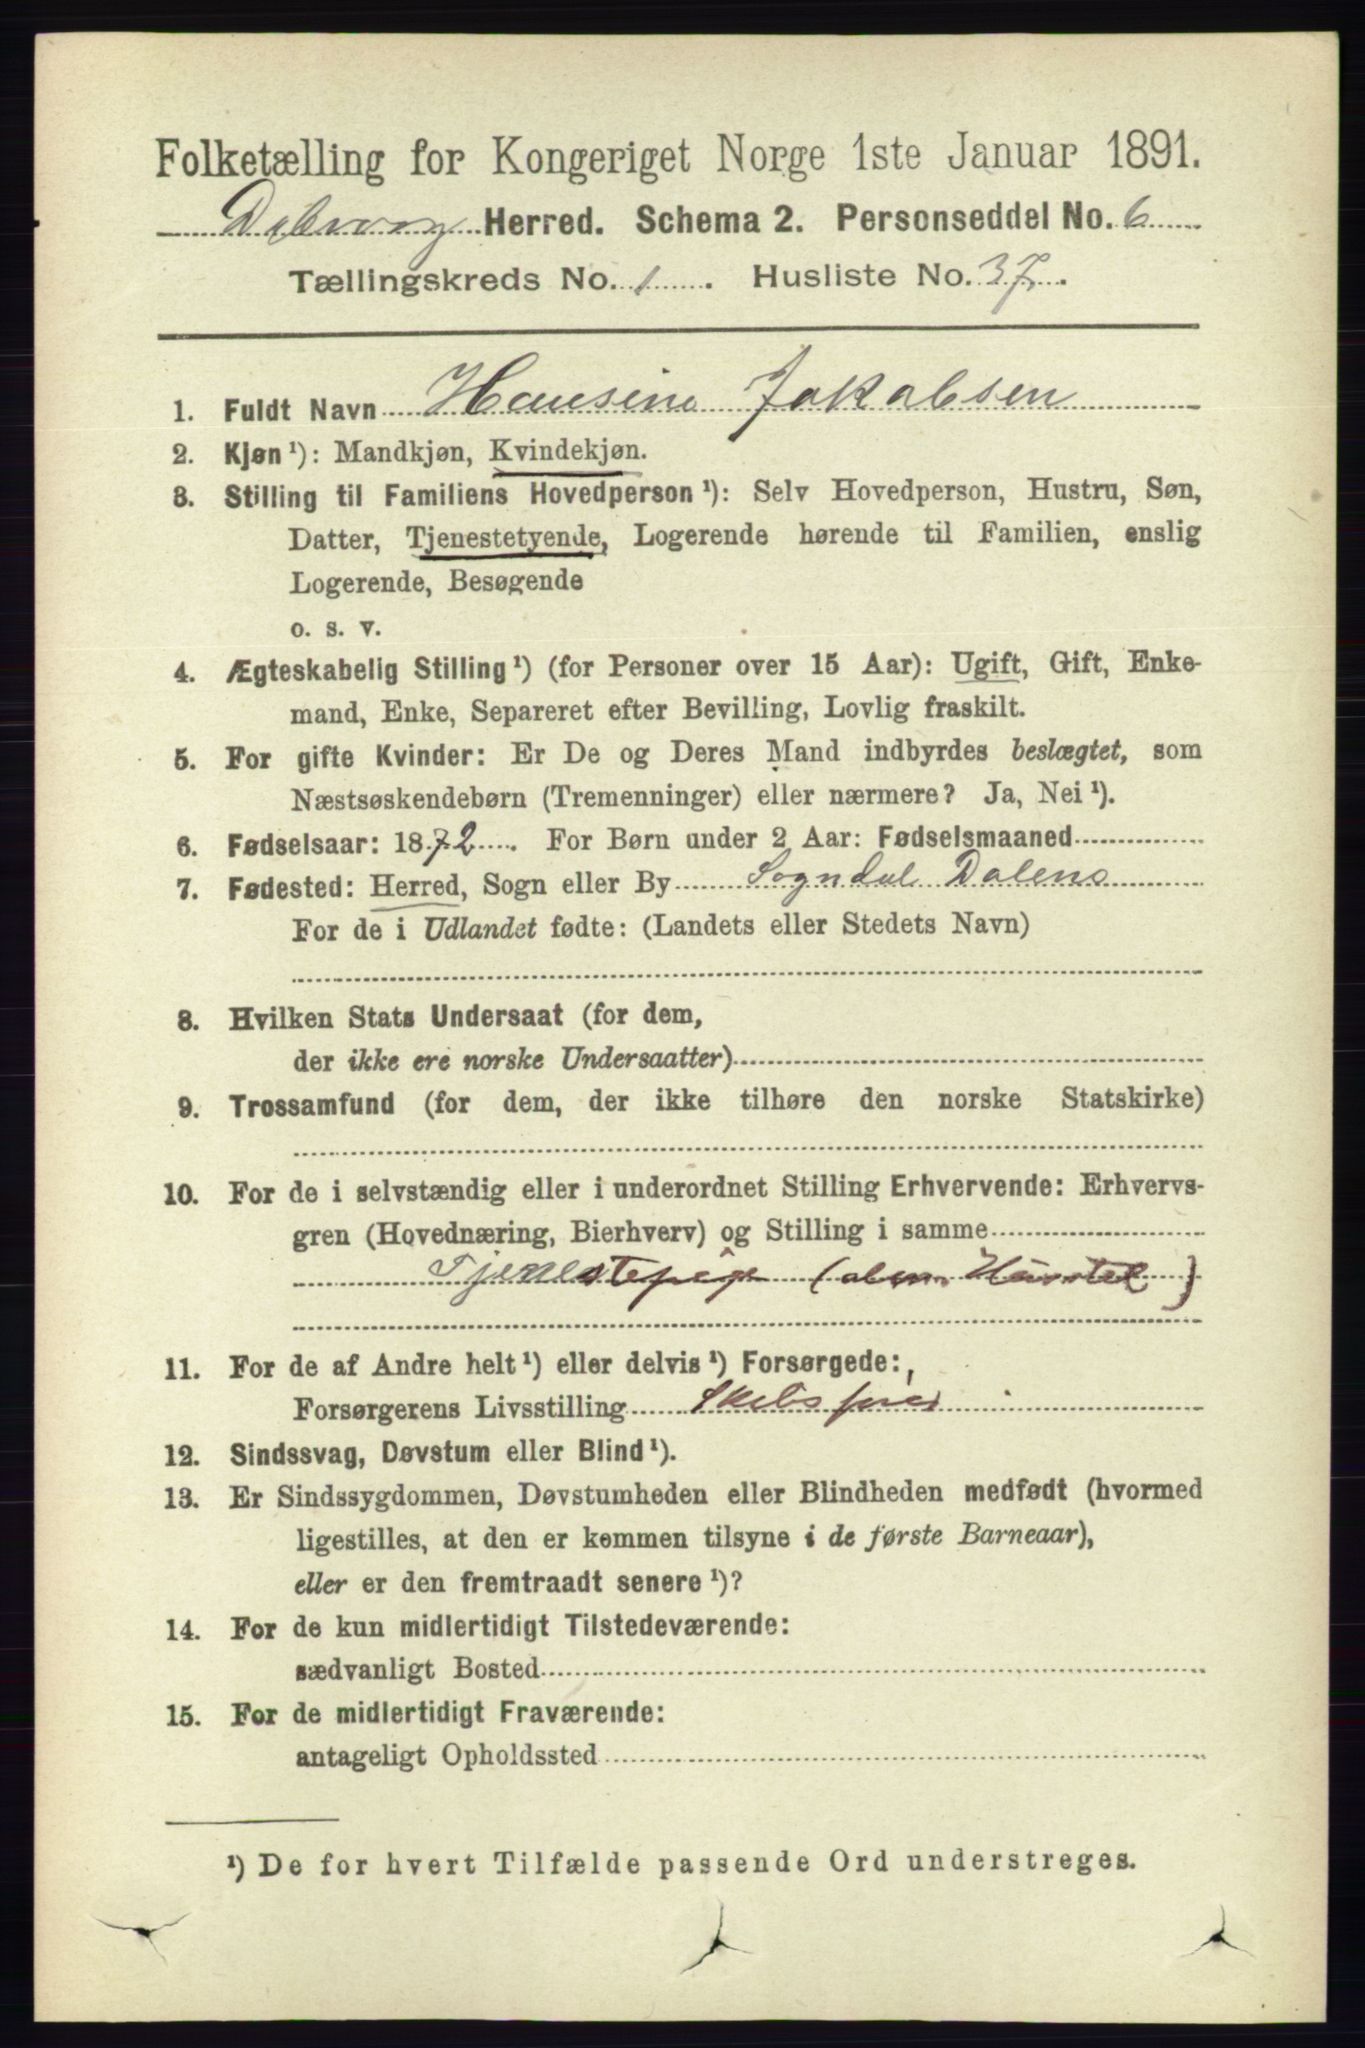 Folketælling for Kongeriget Norge 1ste Januar 1891.
Dybvaag Herred. Schema 2. Personseddel No. 6
Tællingskreds No. 1. Husliste No. 37.
1. Fuldt Navn Hansine Jakobsen
2. Kjøn ¹): Mandkjøn, Kvindekjøn.
3. Stilling til Familiens Hovedperson ¹): Selv Hovedperson, Hustru, Søn,
Datter, Tjenestetyende, Logerende hørende til Familien, enslig
Logerende, Besøgende
o. s. v.
4. Ægteskabelig Stilling ¹) (for Personer over 15 Aar): Ugift, Gift, Enke-
mand, Enke, Separeret efter Bevilling, Lovlig fraskilt.
5. For gifte Kvinder: Er De og Deres Mand indbyrdes beslægtet, som
Næstsøskendebørn (Tremenninger) eller nærmere? Ja, Nei ¹).
6. Fødselsaar: 1872. For Børn under 2 Aar: Fødselsmaaned
7. Fødested: Herred, Sogn eller By Sogndal Dalens
For de i Udlandet fødte: (Landets eller Stedets Navn)
8. Hvilken Stats Undersaat (for dem,
der ikke ere norske Undersaatter)
9. Trossamfund (for dem, der ikke tilhøre den norske Statskirke)
10. For de i selvstændig eller i underordnet Stilling Erhvervende: Erhvervs-
gren (Hovednæring, Bierhverv) og Stilling i samme
Tjenestepige (alm. Husstel)
11. For de af Andre helt ¹) eller delvis ¹) Forsørgede:
Forsørgerens Livsstilling
12. Sindssvag, Døvstum eller Blind ¹).
13. Er Sindssygdommen, Døvstumheden eller Blindheden medfødt (hvormed
ligestilles, at den er kommen tilsyne i de første Barneaar),
eller er den fremtraadt senere ¹)?
14. For de kun midlertidigt Tilstedeværende:
sædvanligt Bosted
15. For de midlertidigt Fraværende:
antageligt Opholdssted
¹) De for hvert Tilfælde passende Ord understreges.